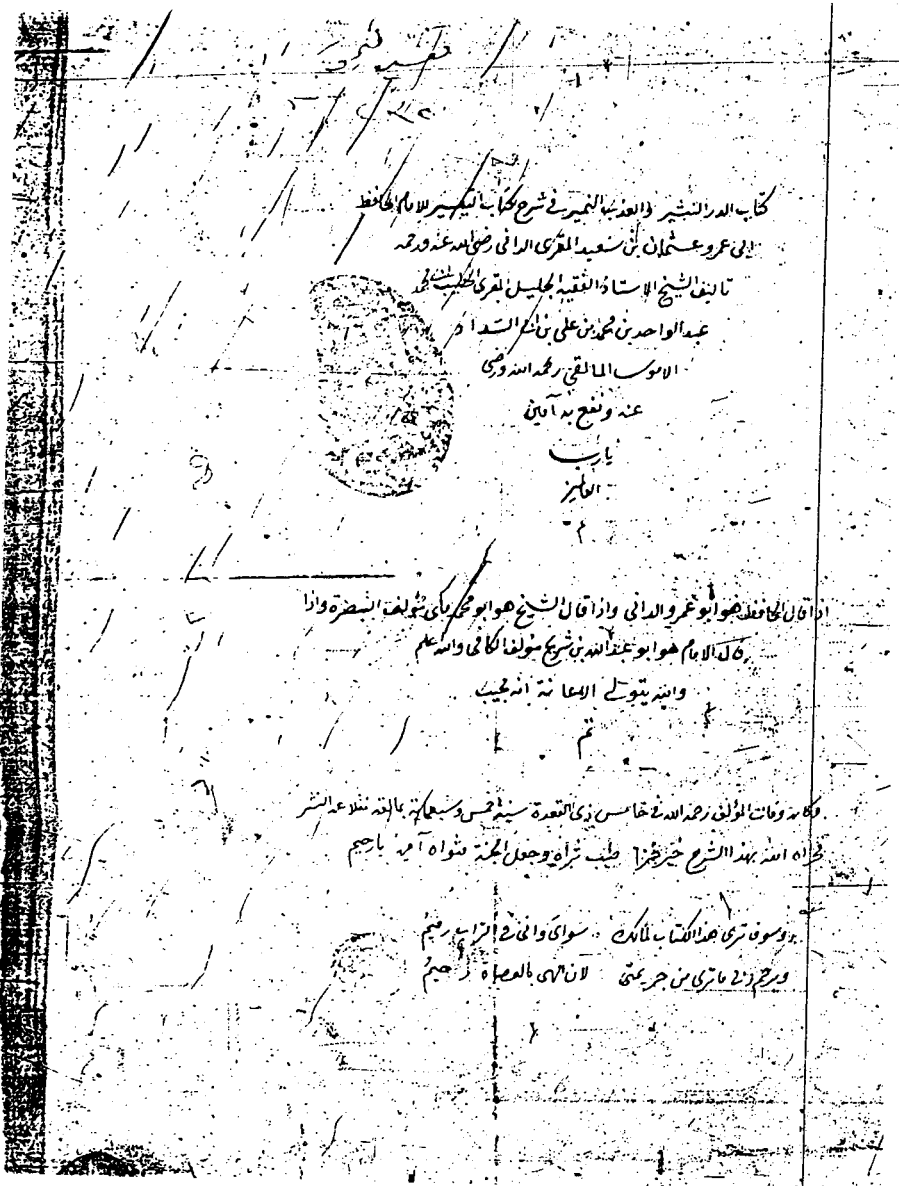 كتاب الدر النثير والعذب النمير في شرح كتاب التيسير للامام الحافظ
ابي عمرو عثمان بن سعيد المقرى الدانى رضى الله عنه ورحمه
تاليف الشيخ الاستاذ الفقيه الجليل المقرى الخطيب ابى محمد
عبد الواحد بن محمد بن على بن ابى السداد
الاموى المالقي رحمه الله ورضى
عنه ونفع به آمين
يارب
العالمين
م
اذا قال الحافظ هو ابو عمرو الدانى واذا قال الشيخ هو ابو محمد مكى مؤلف التبصرة واذا
قال الامام هو ابو عبد الله بن شريح مؤلف الكافى والله علم
والله يتولى الاعانة انه مجيب
تم
وكانه وفات المؤلف رحمه الله في خامس ذى القعدة سنة خمس وسبعمائة بمالقه نقلا عن النشر
فجزاه الله بهذا الشرح خير طيب ثراه وجعل الجنة مثواه آمين يارحيم
وسوف ترى هذا الكتاب لمالك سواى وانى فى التراب رميم
ويرحم ما ترى من جريمتى لان الهى بالعصاه رحيم